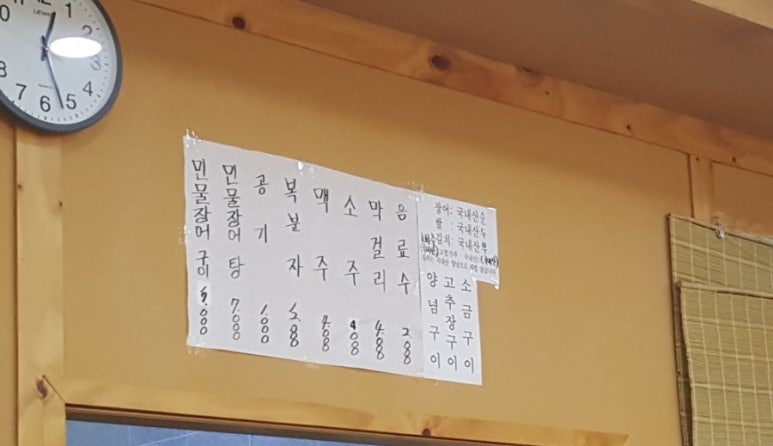 민물장어구이
민물장어탕 7.000
공기 1.000
복분자
맥주 4.000
소주 4.000
막걸리 4.000
음료수 2.000
장어: 국내산
쌀: 국내산
배추김치: 국내산
양념구이
고추장구이
소금구이
12
1
2
3
4
5
6
7
8